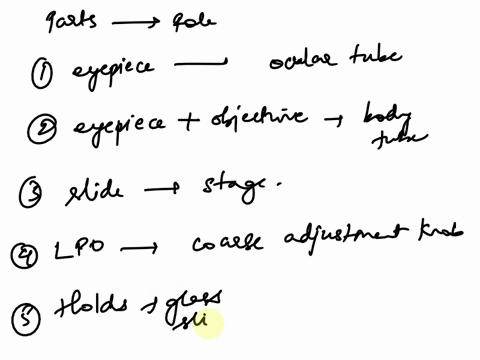 parts → role
① eyepiece — ocular tube
② eyepiece + objective → body
tube
③ slide → stage.
④ LPO → coarse adjustment knob
⑤ Holds → glass
sli